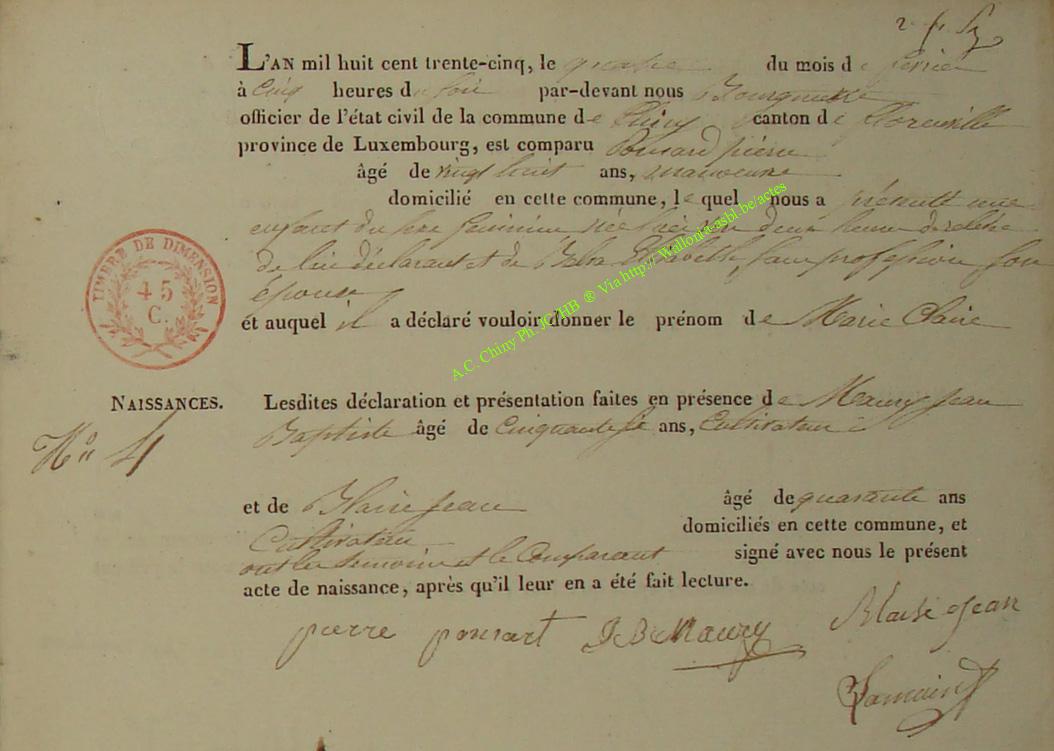 L'AN mil huit cent trente-cinq, le quatre du mois de fevrier
à cinq heures du soir par-devant nous
officier de l'état civil de la commune de Chiny canton de florenville
province de Luxembourg, est comparu Ponsard pierre
âgé de vingt huit ans, manoeuvre
domicilié en cette commune, le quel nous a présenté une
enfant du sexe feminin née
de lui déclarant et de Elisabeth, sans profession son
épouse
et auquel il a déclaré vouloir donner le prénom de Marie Claire
TIMBRE DE DIMENSION
45
C.
A.C. Chiny Ph. JC/HB ® Via http://Wallonia-asbl.be/actes
NAISSANCES.
Lesdites déclaration et présentation faites en présence de Maury Jean
Baptiste âgé de Cinquante ans, Cultivateur
N° 4
et de Blaise Jean âgé de quarante ans
Cultivateur domiciliés en cette commune, et
ont les temoins et le Comparant signé avec nous le présent
acte de naissance, après qu'il leur en a été fait lecture.
pierre ponsart J B Maury Blaise Jean